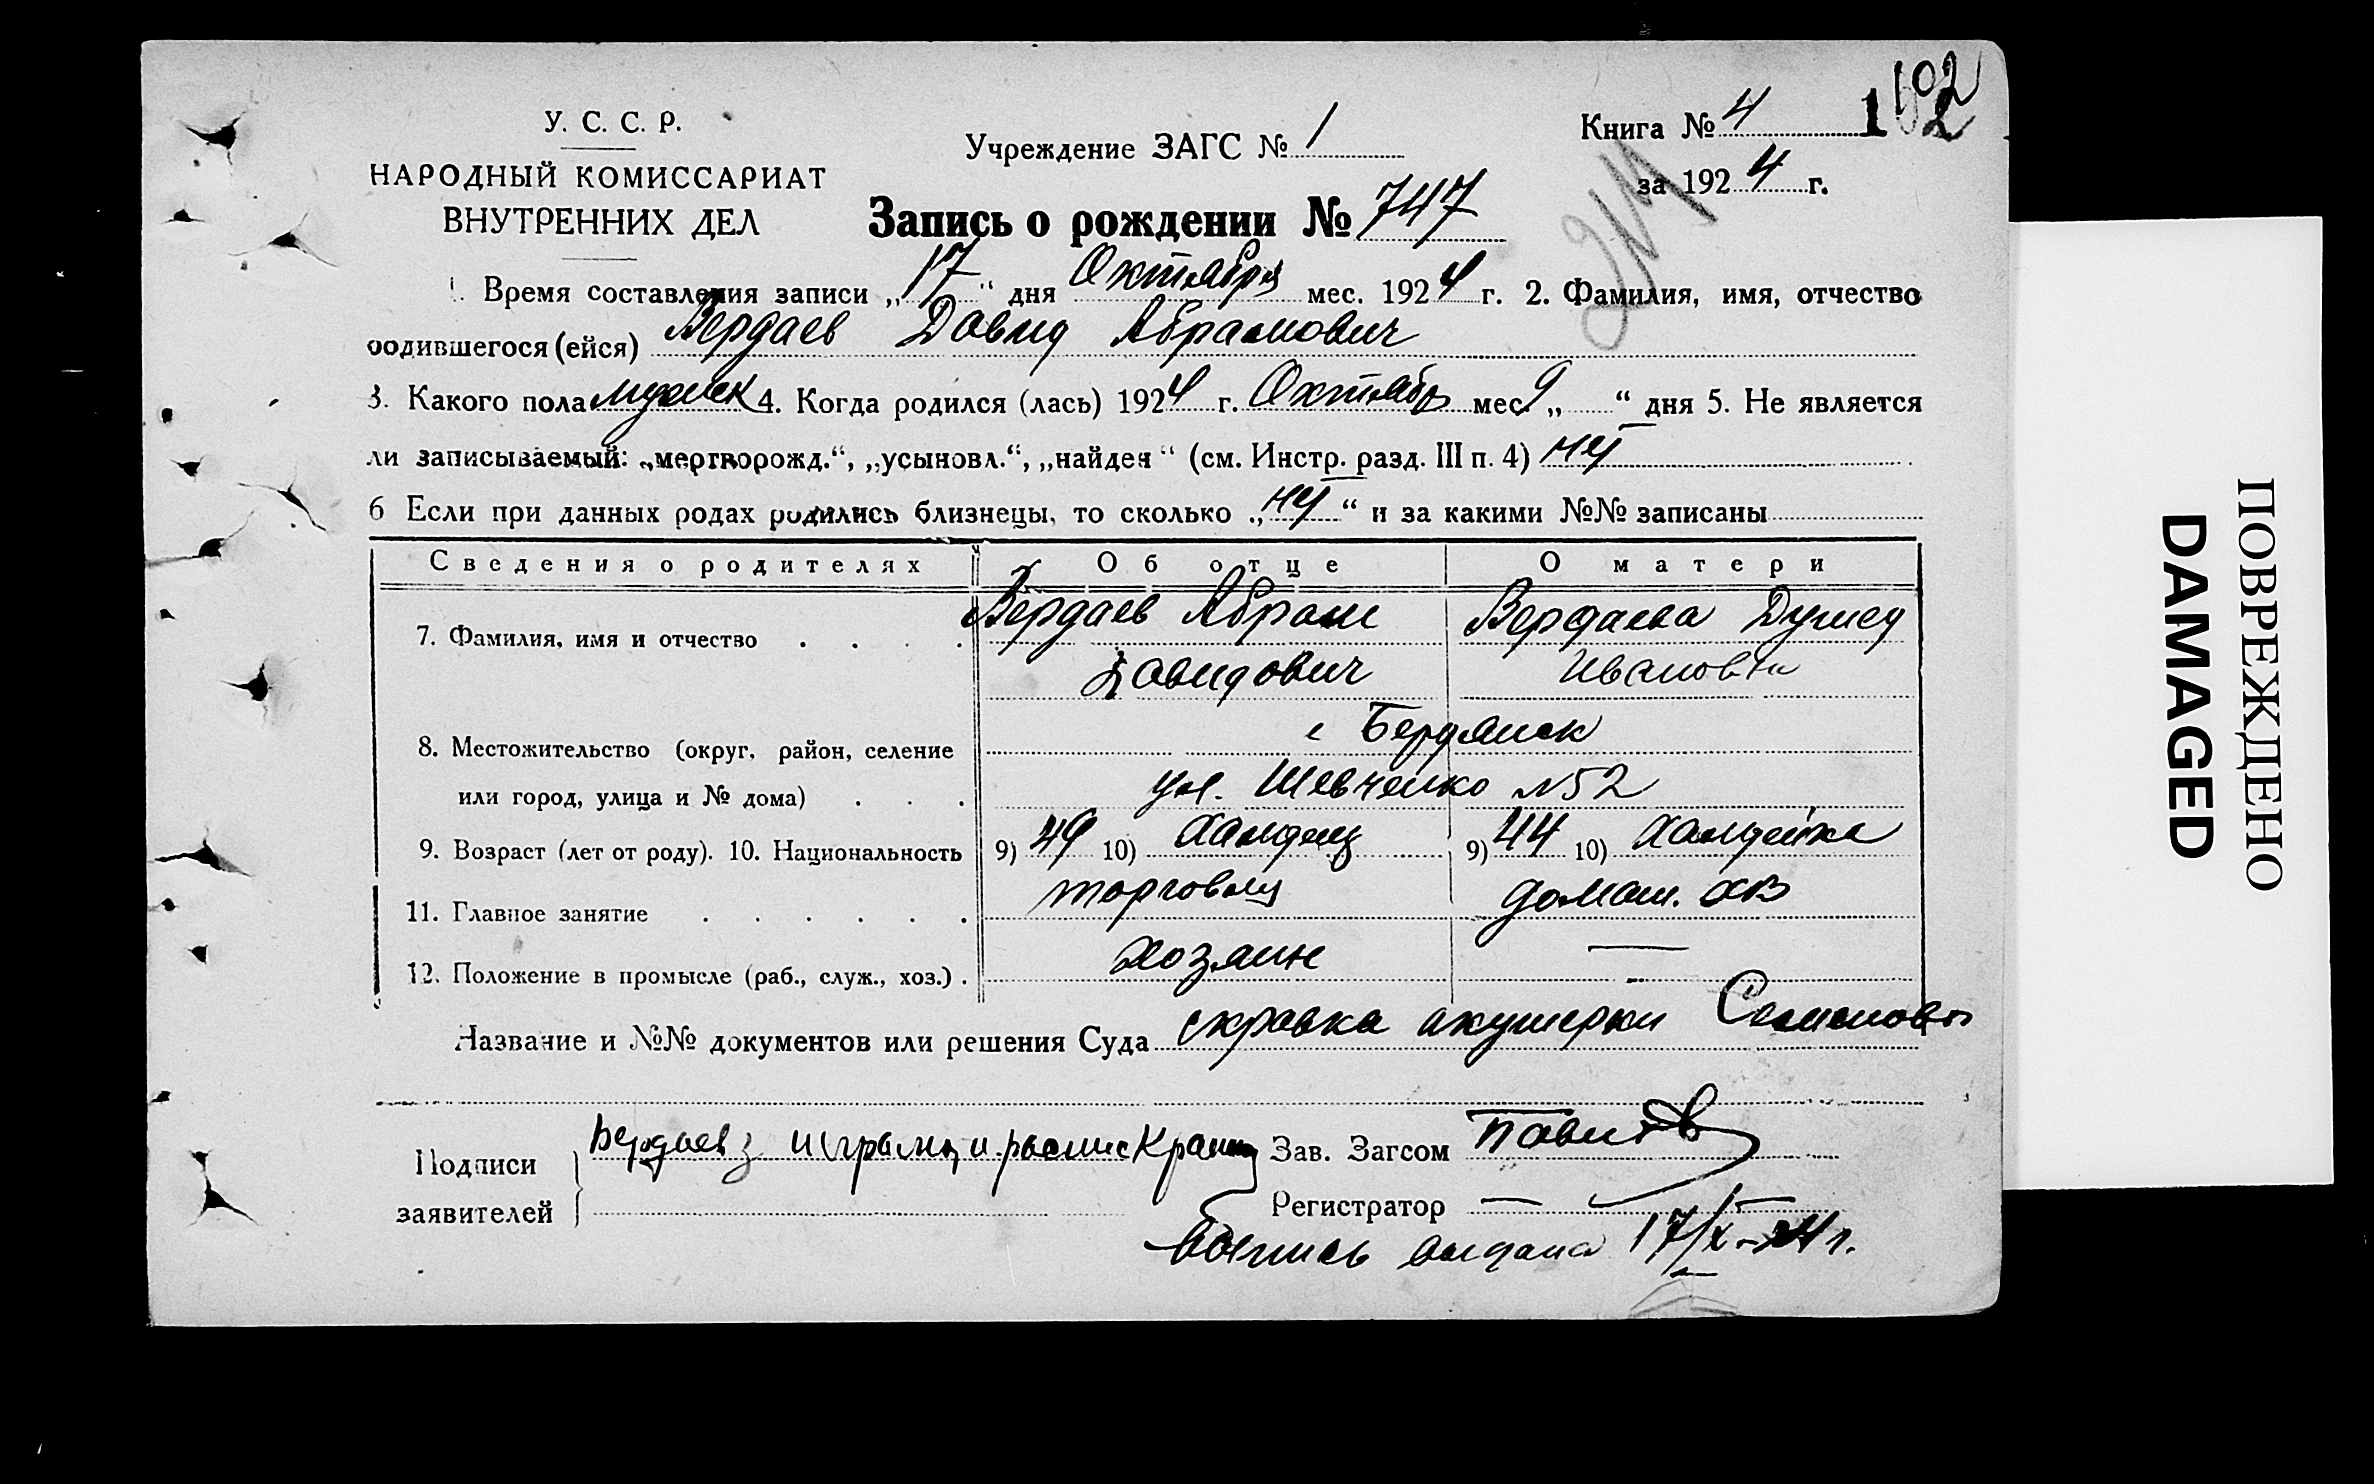 У. С. С. Р.
НАРОДНЫЙ КОМИССАРИАТ
ВНУТРЕННИХ ДЕЛ
Учреждение ЗАГС № 1
Книга № 4
102
за 1924 г.
Запись о рождении № 747
1. Время составления записи „17“ дня Октября мес. 1924 г. 2. Фамилия, имя, отчество
родившегося (ейся) Вердаев Давид Абрамович
3. Какого пола мужск 4. Когда родился (лась) 1924 г. Октябр мес. 9 „ “ дня 5. Не является
ли записываемый: „мертворожд.“, „усыновл.“, „найден“ (см. Инстр. разд. III п. 4) нет
6 Если при данных родах родились близнецы, то сколько „нет“ и за какими №№ записаны
Сведения о родителях Об отце О матери
7. Фамилия, имя и отчество Вердаев Абрам Вердаева
Давидович Ивановна
8. Местожительство (округ, район, селение г Бердянск
или город, улица и № дома) ул. Шевченко №52
9. Возраст (лет от роду). 10. Национальность 9) 49 10) Халдеец 9) 44 10) Халдейка
11. Главное занятие торговец домаш. хоз
12. Положение в промысле (раб., служ., хоз.) хозяин —
Название и №№ документов или решения Суда справка акушерки Семеновой
Подписи
заявителей
Бердаев
Зав. Загсом
Регистратор —
выдана 17/X-24 г.
ПОВРЕЖДЕНО
DAMAGED